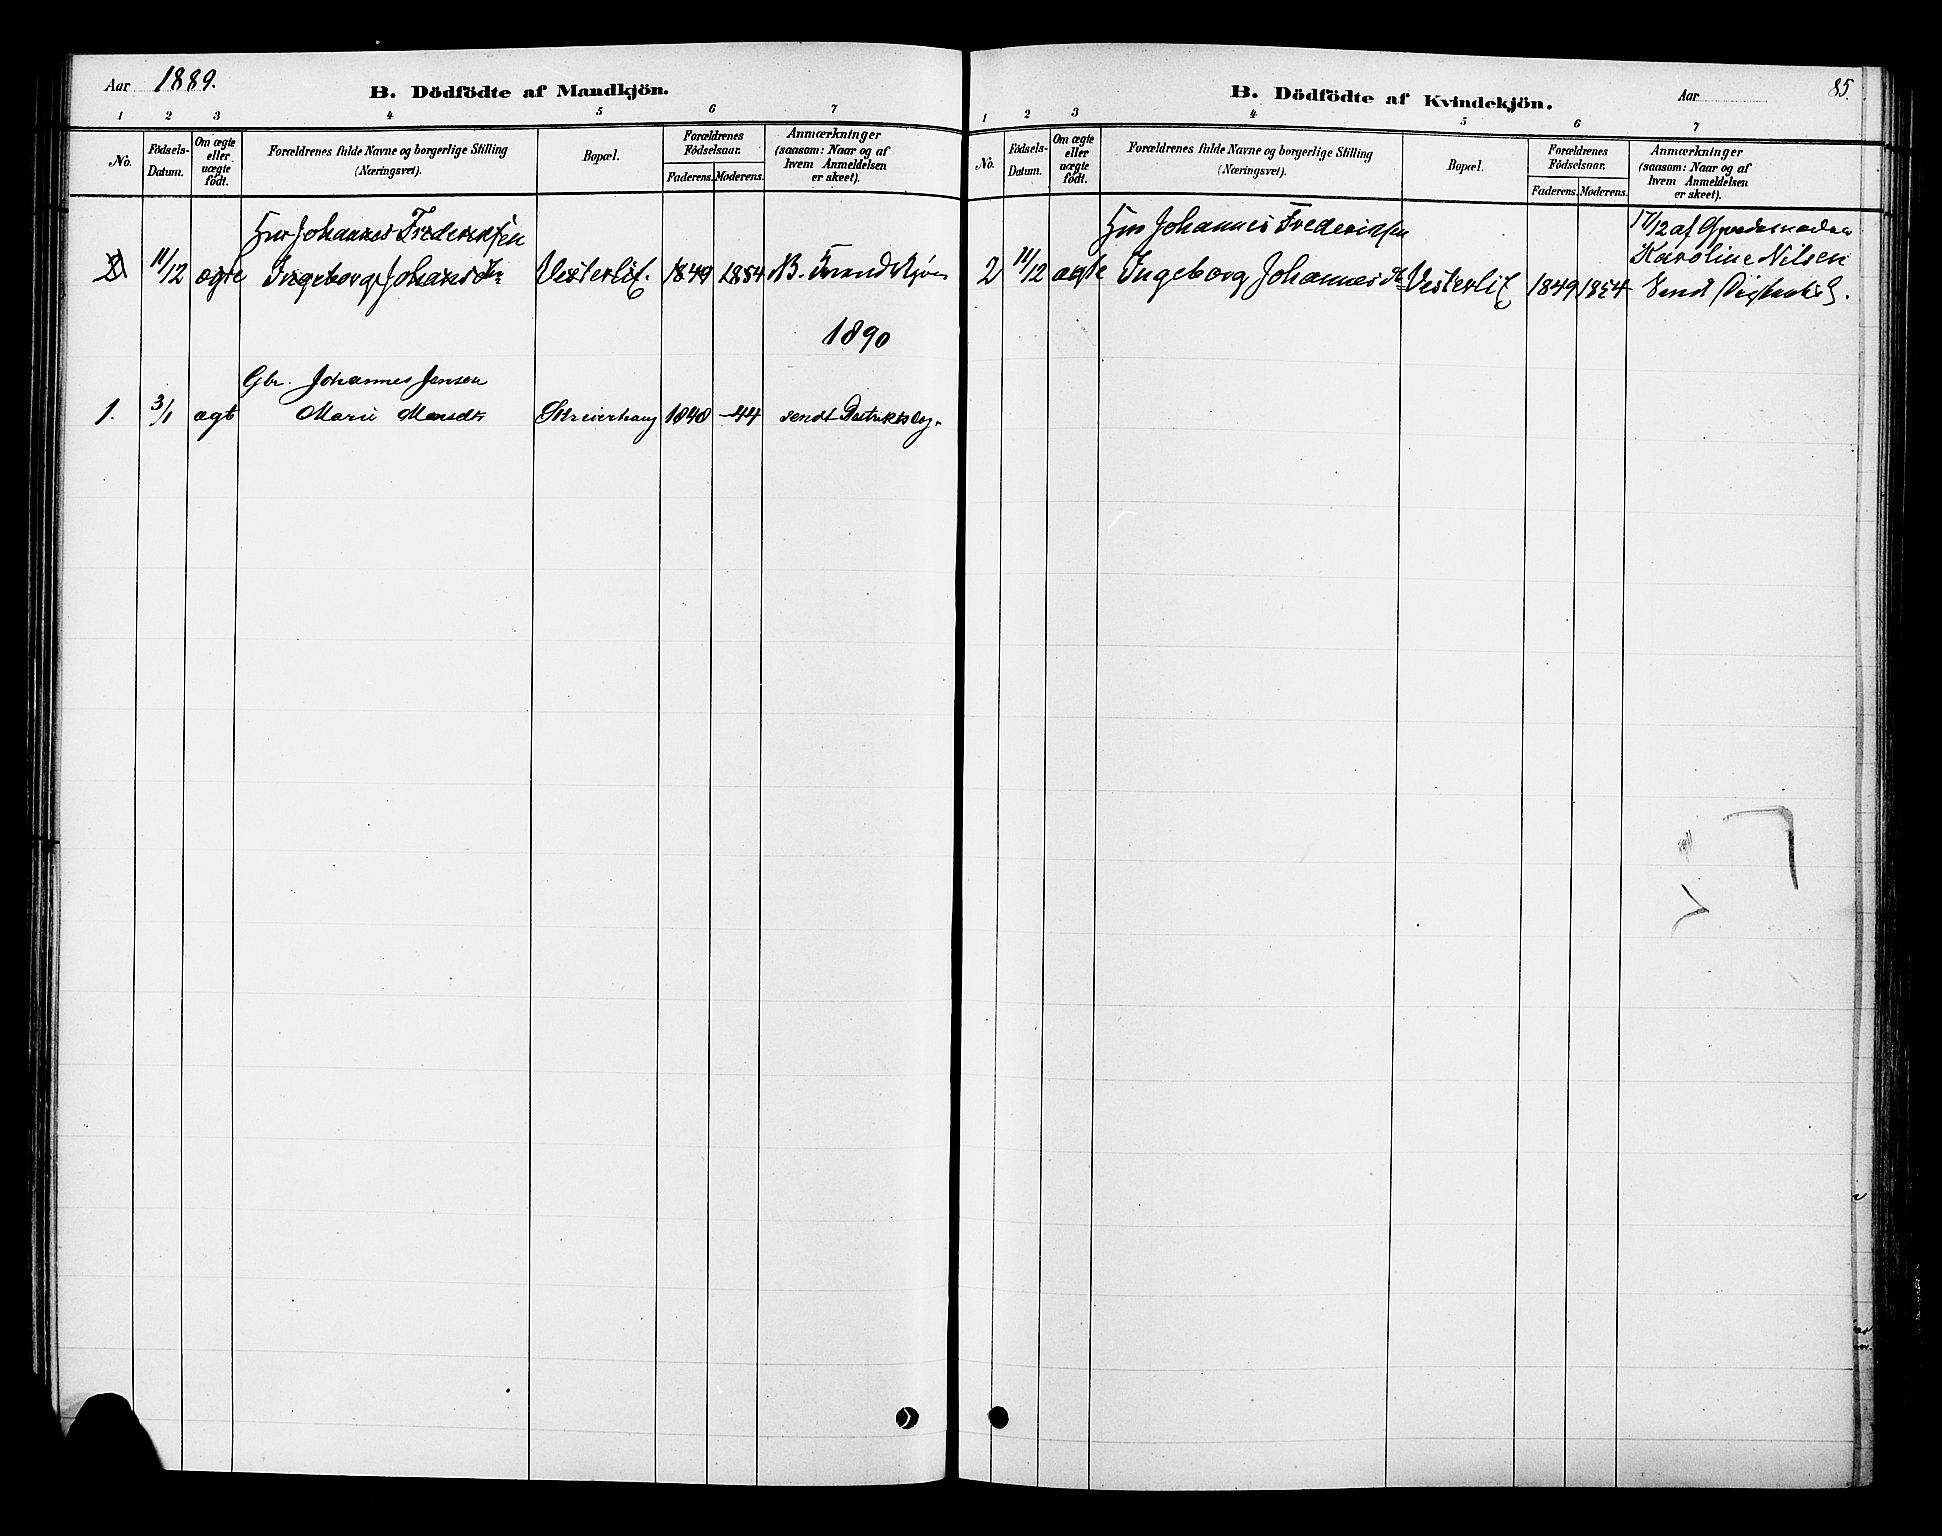 Aar 1889.
B. Dödfödte af Mandkjön.
1 2 3 4 5 6 7
No. Födsels-Datum. Om ægte eller uægte födt. Forældrenes fulde Navne og borgerlige Stilling (Næringsvei). Bopæl. Forældrenes Födselsaar. Faderens. Moderens. Anmærkninger (saasom: Naar og af hvem Anmeldelsen er skeet).
Johannes Frederiksen
11/12 ægte Ingeborg Vesterlif. 1849 1854
1890
Gbr. Johannes Jensen
1. 3/1 ægt Marie Skreverhaug 1840 -44 sendt
B. Dödfödte af Kvindekjön.
Aar
85.
1 2 3 4 5 6 7
No. Födsels-Datum. Om ægte eller uægte födt. Forældrenes fulde Navne og borgerlige Stilling (Næringsvei). Bopæl. Forældrenes Födselsaar. Faderens. Moderens. Anmærkninger (saasom: Naar og af hvem Anmeldelsen er skeet).
Johannes Frederiksen 17/12 af
Karoline Nilsen
2 11/12 ægte Ingeborg Johannesdtr Vesterlif 1849 1854